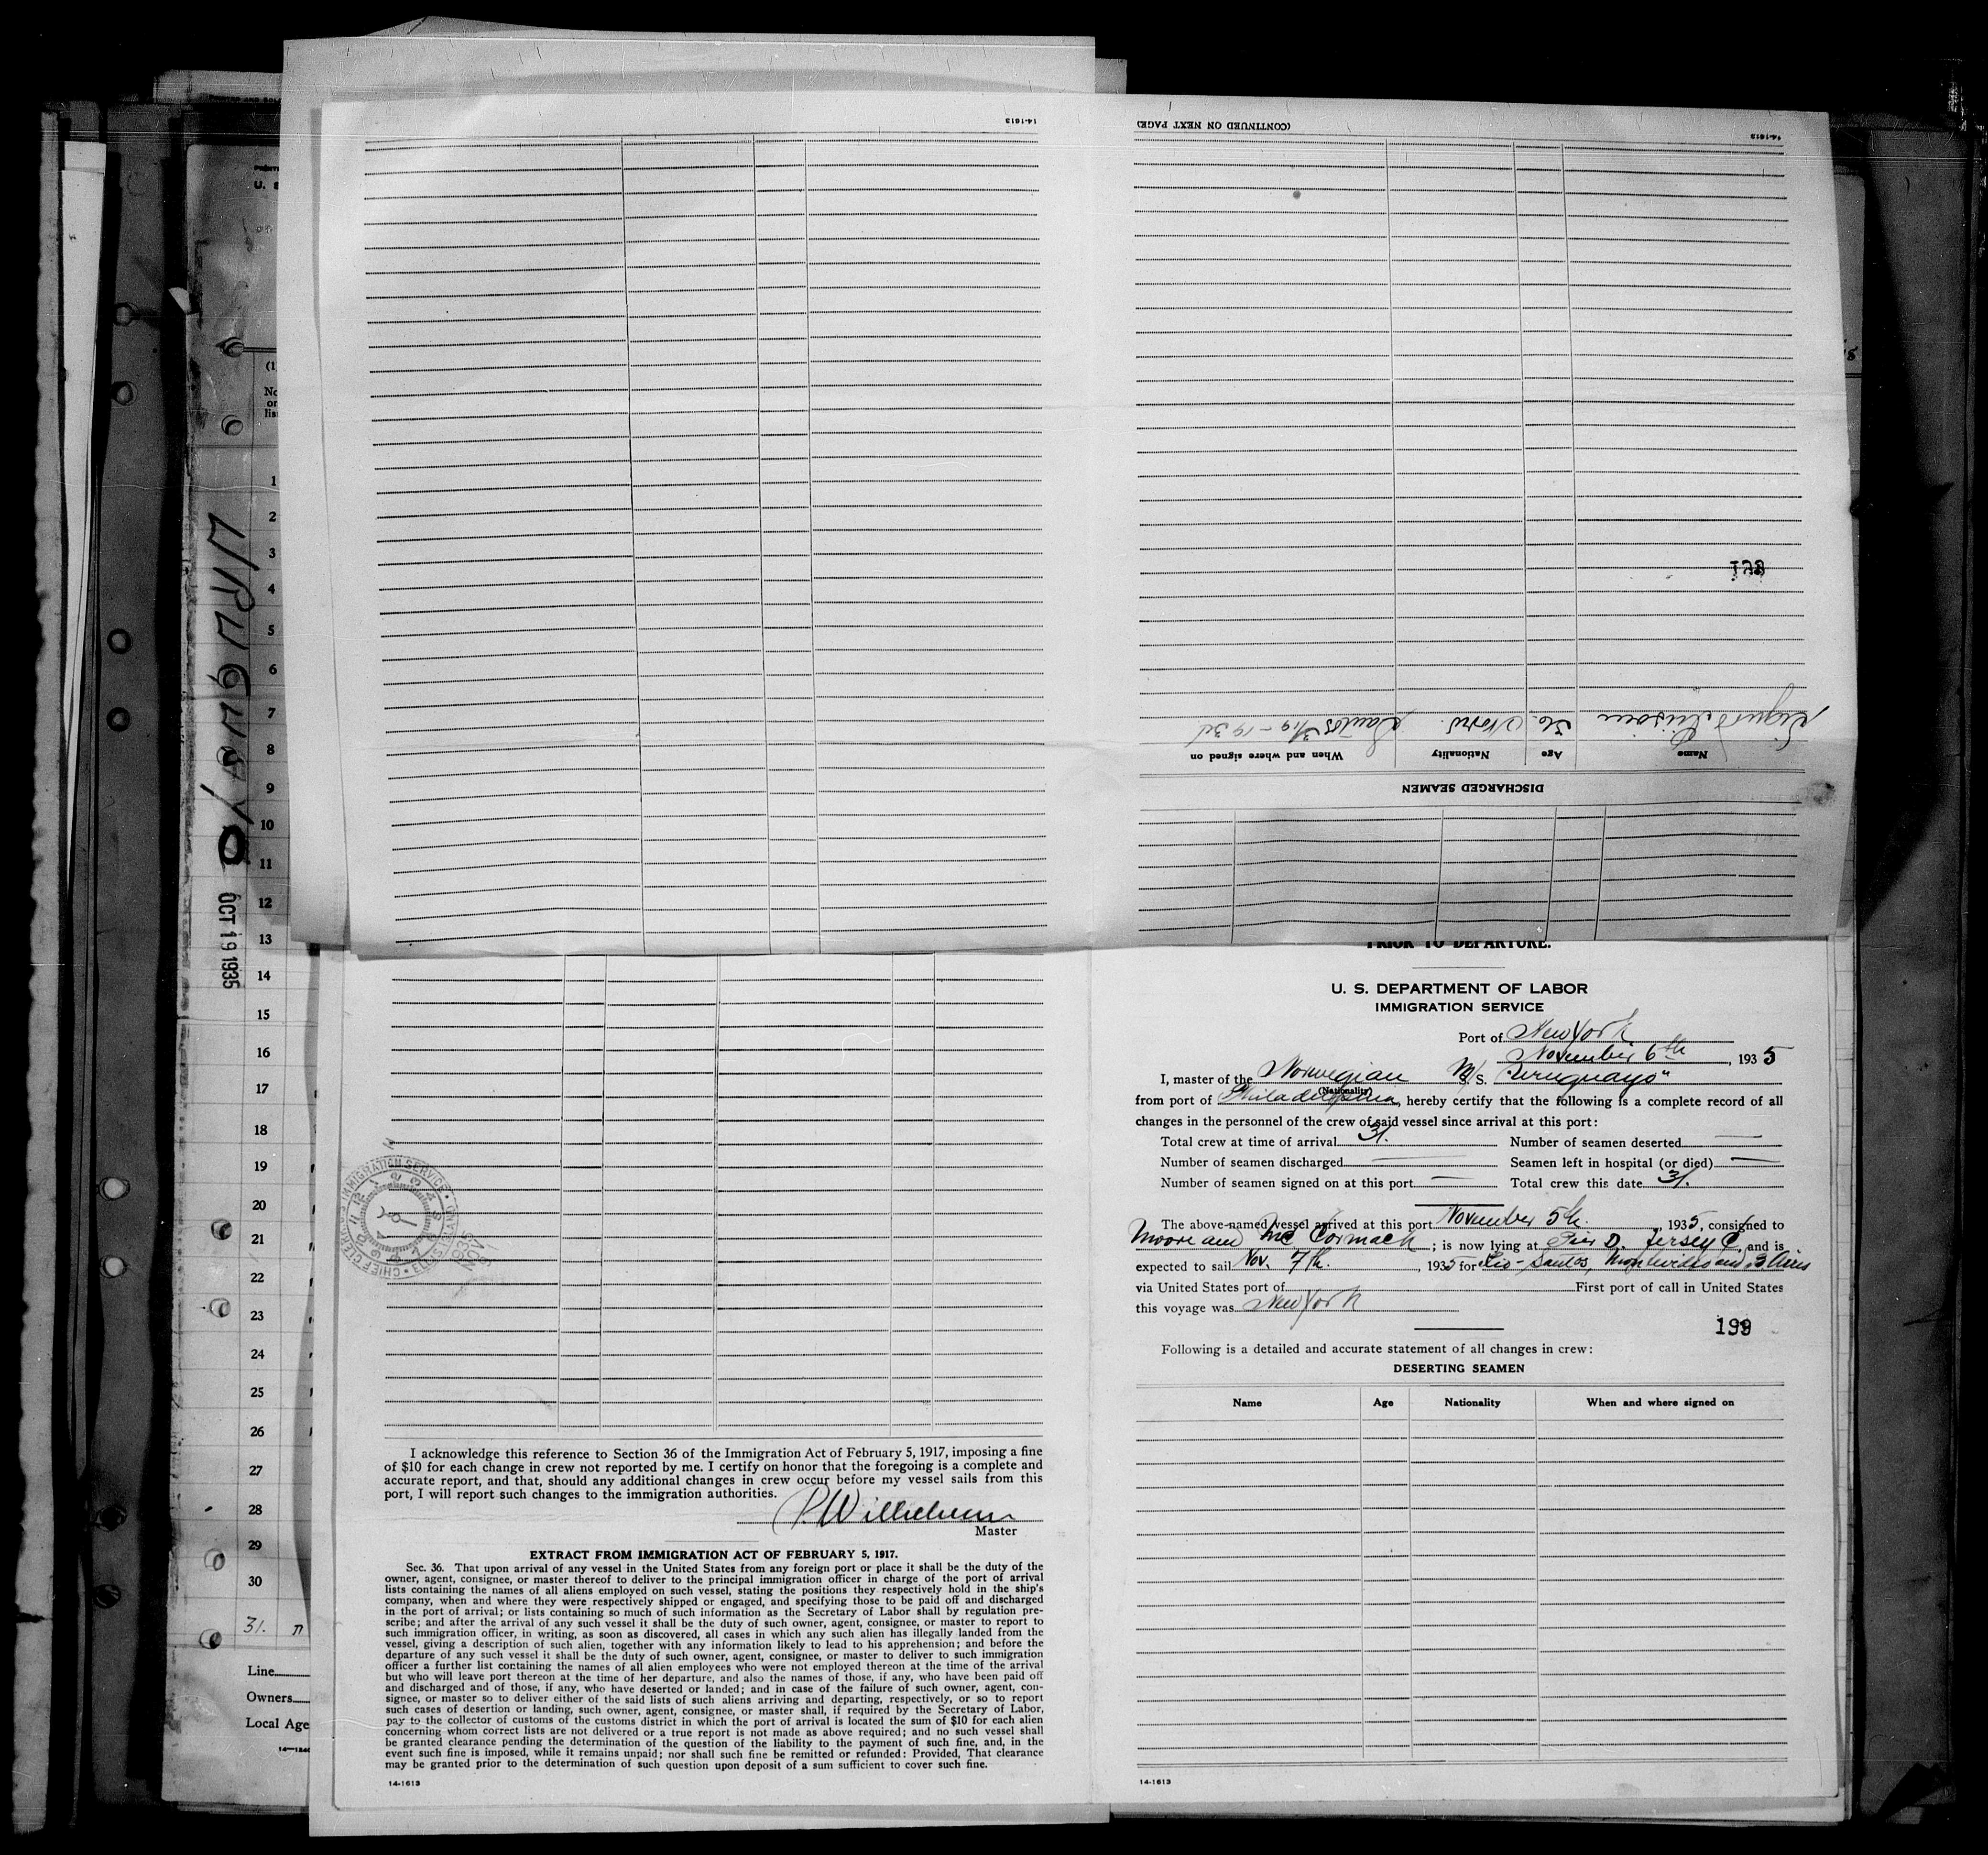 14-1613
(CONTINUED ON NEXT PAGE)
14-1613
DISCHARGED SEAMEN
Name Age Nationality When and where signed on
36. Norw. Santos 3/19-193
U. S
(1)
No
on
lis
1
2
3
4
5
6
7
8
9
10
11
12
13
14
15
16
17
18
19
20
21
22
23
24
25
26
27
28
29
30
31.
Line
Owners
Local Age
URUGUAYO
OCT 19 1935
PRIOR TO DEPARTURE.
U. S. DEPARTMENT OF LABOR
IMMIGRATION SERVICE
Port of New York
November 6th, 1935
I, master of the Norwegian M/S. "Uruguayo"
(Nationality)
from port of Philadelphia, hereby certify that the following is a complete record of all
changes in the personnel of the crew of said vessel since arrival at this port:
Total crew at time of arrival 31. Number of seamen deserted —
Number of seamen discharged — Seamen left in hospital (or died) —
Number of seamen signed on at this port — Total crew this date 31.
The above-named vessel arrived at this port November 5th., 1935, consigned to
Moore and Mc Cormack; is now lying at Pier D. Jersey C. and is
expected to sail Nov. 7th., 1935 for Rio-Santos, Montevideo and B Aires
via United States port of First port of call in United States
this voyage was New York
199
Following is a detailed and accurate statement of all changes in crew:
DESERTING SEAMEN
Name Age Nationality When and where signed on
14-1613
IMMIGRATION SERVICE
CHIEF CLERK'S
NOV
1935
I acknowledge this reference to Section 36 of the Immigration Act of February 5, 1917, imposing a fine
of $10 for each change in crew not reported by me. I certify on honor that the foregoing is a complete and
accurate report, and that, should any additional changes in crew occur before my vessel sails from this
port, I will report such changes to the immigration authorities.
P. Wilhelmsen
Master
EXTRACT FROM IMMIGRATION ACT OF FEBRUARY 5, 1917.
Sec. 36. That upon arrival of any vessel in the United States from any foreign port or place it shall be the duty of the
owner, agent, consignee, or master thereof to deliver to the principal immigration officer in charge of the port of arrival
lists containing the names of all aliens employed on such vessel, stating the positions they respectively hold in the ship's
company, when and where they were respectively shipped or engaged, and specifying those to be paid off and discharged
in the port of arrival; or lists containing so much of such information as the Secretary of Labor shall by regulation pre-
scribe; and after the arrival of any such vessel it shall be the duty of such owner, agent, consignee, or master to report to
such immigration officer, in writing, as soon as discovered, all cases in which any such alien has illegally landed from the
vessel, giving a description of such alien, together with any information likely to lead to his apprehension; and before the
departure of any such vessel it shall be the duty of such owner, agent, consignee, or master to deliver to such immigration
officer a further list containing the names of all alien employees who were not employed thereon at the time of the arrival
but who will leave port thereon at the time of her departure, and also the names of those, if any, who have been paid off
and discharged and of those, if any, who have deserted or landed; and in case of the failure of such owner, agent, con-
signee, or master so to deliver either of the said lists of such aliens arriving and departing, respectively, or so to report
such cases of desertion or landing, such owner, agent, consignee, or master shall, if required by the Secretary of Labor,
pay to the collector of customs of the customs district in which the port of arrival is located the sum of $10 for each alien
concerning whom correct lists are not delivered or a true report is not made as above required; and no such vessel shall
be granted clearance pending the determination of the question of the liability to the payment of such fine, and, in the
event such fine is imposed, while it remains unpaid; nor shall such fine be remitted or refunded: Provided, That clearance
may be granted prior to the determination of such question upon deposit of a sum sufficient to cover such fine.
14-1613